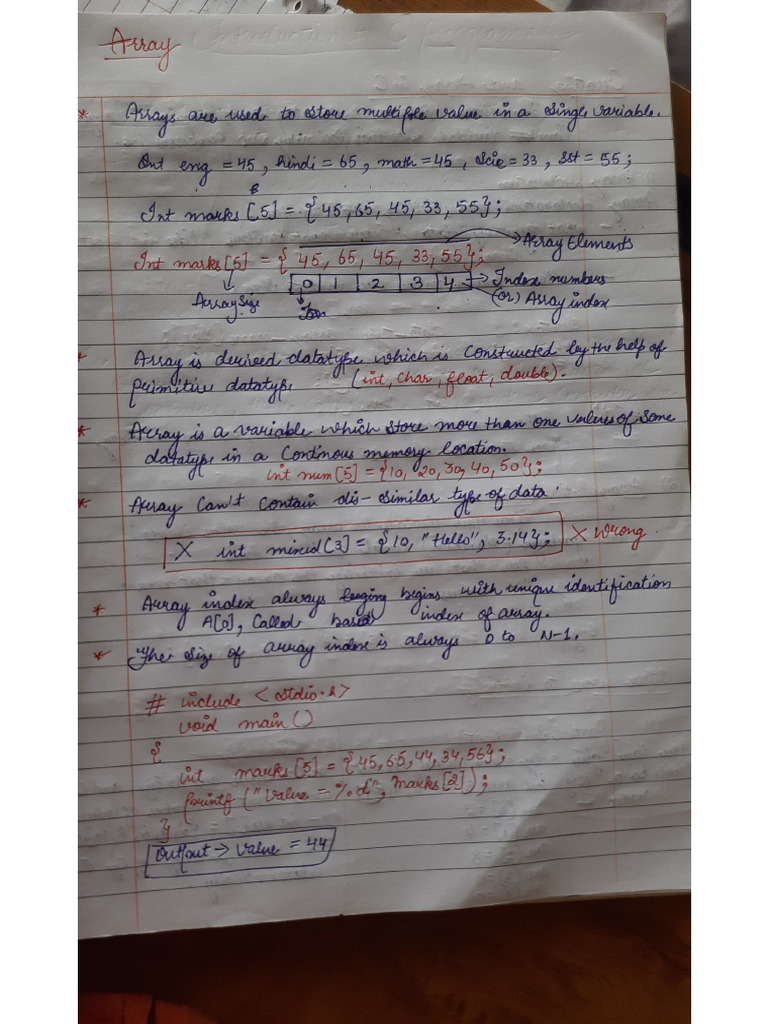 Array
* Arrays are used to store multiple value in a single variable.
Int eng = 45, hindi = 65, math = 45, Scie = 33, sst = 55;
Int marks [5] = {45, 65, 45, 33, 55};
Int marks[5] = { 45, 65, 45, 33, 55}; → Array Elements
0 1 2 3 4 → Index numbers
Array Size (or) Array index
* Array is derived datatype which is constructed by the help of
primitive datatype (int, char, float, double).
* Array is a variable which store more than one values of same
datatype in a Continous memory location.
int num [5] = {10, 20, 30, 40, 50};
* Array Can't Contain dis-similar type of data.
X int mixed [3] = {10, "Hello", 3.14}; X Wrong.
* Array index always begins with unique identification
A[0], Called based index of array.
* The size of array index is always 0 to N-1.
# include <stdio.h>
void main ()
{
int marks [5] = {45, 65, 44, 34, 56};
printf ("Value = %d", marks [2]);
}
Output → Value = 44